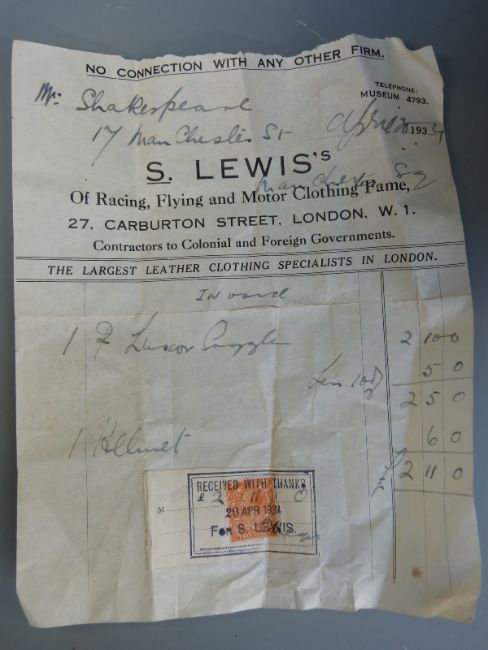 NO CONNECTION WITH ANY OTHER FIRM.
TELEPHONE:
MUSEUM 4793.
Mr. Shakespeare
17 Manchester St
April 20 1934
S. LEWIS'S
Manchester Sq
Of Racing, Flying and Motor Clothing Fame,
27, CARBURTON STREET, LONDON, W. 1.
Contractors to Colonial and Foreign Governments.
THE LARGEST LEATHER CLOTHING SPECIALISTS IN LONDON.
1 Luxor Goggle 2 10 0
Less 10% 5 0
2 5 0
1 Helmet 6 0
2 11 0
RECEIVED WITH THANKS
£ 2 11 0
20 APR 1934
FOR S. LEWIS.